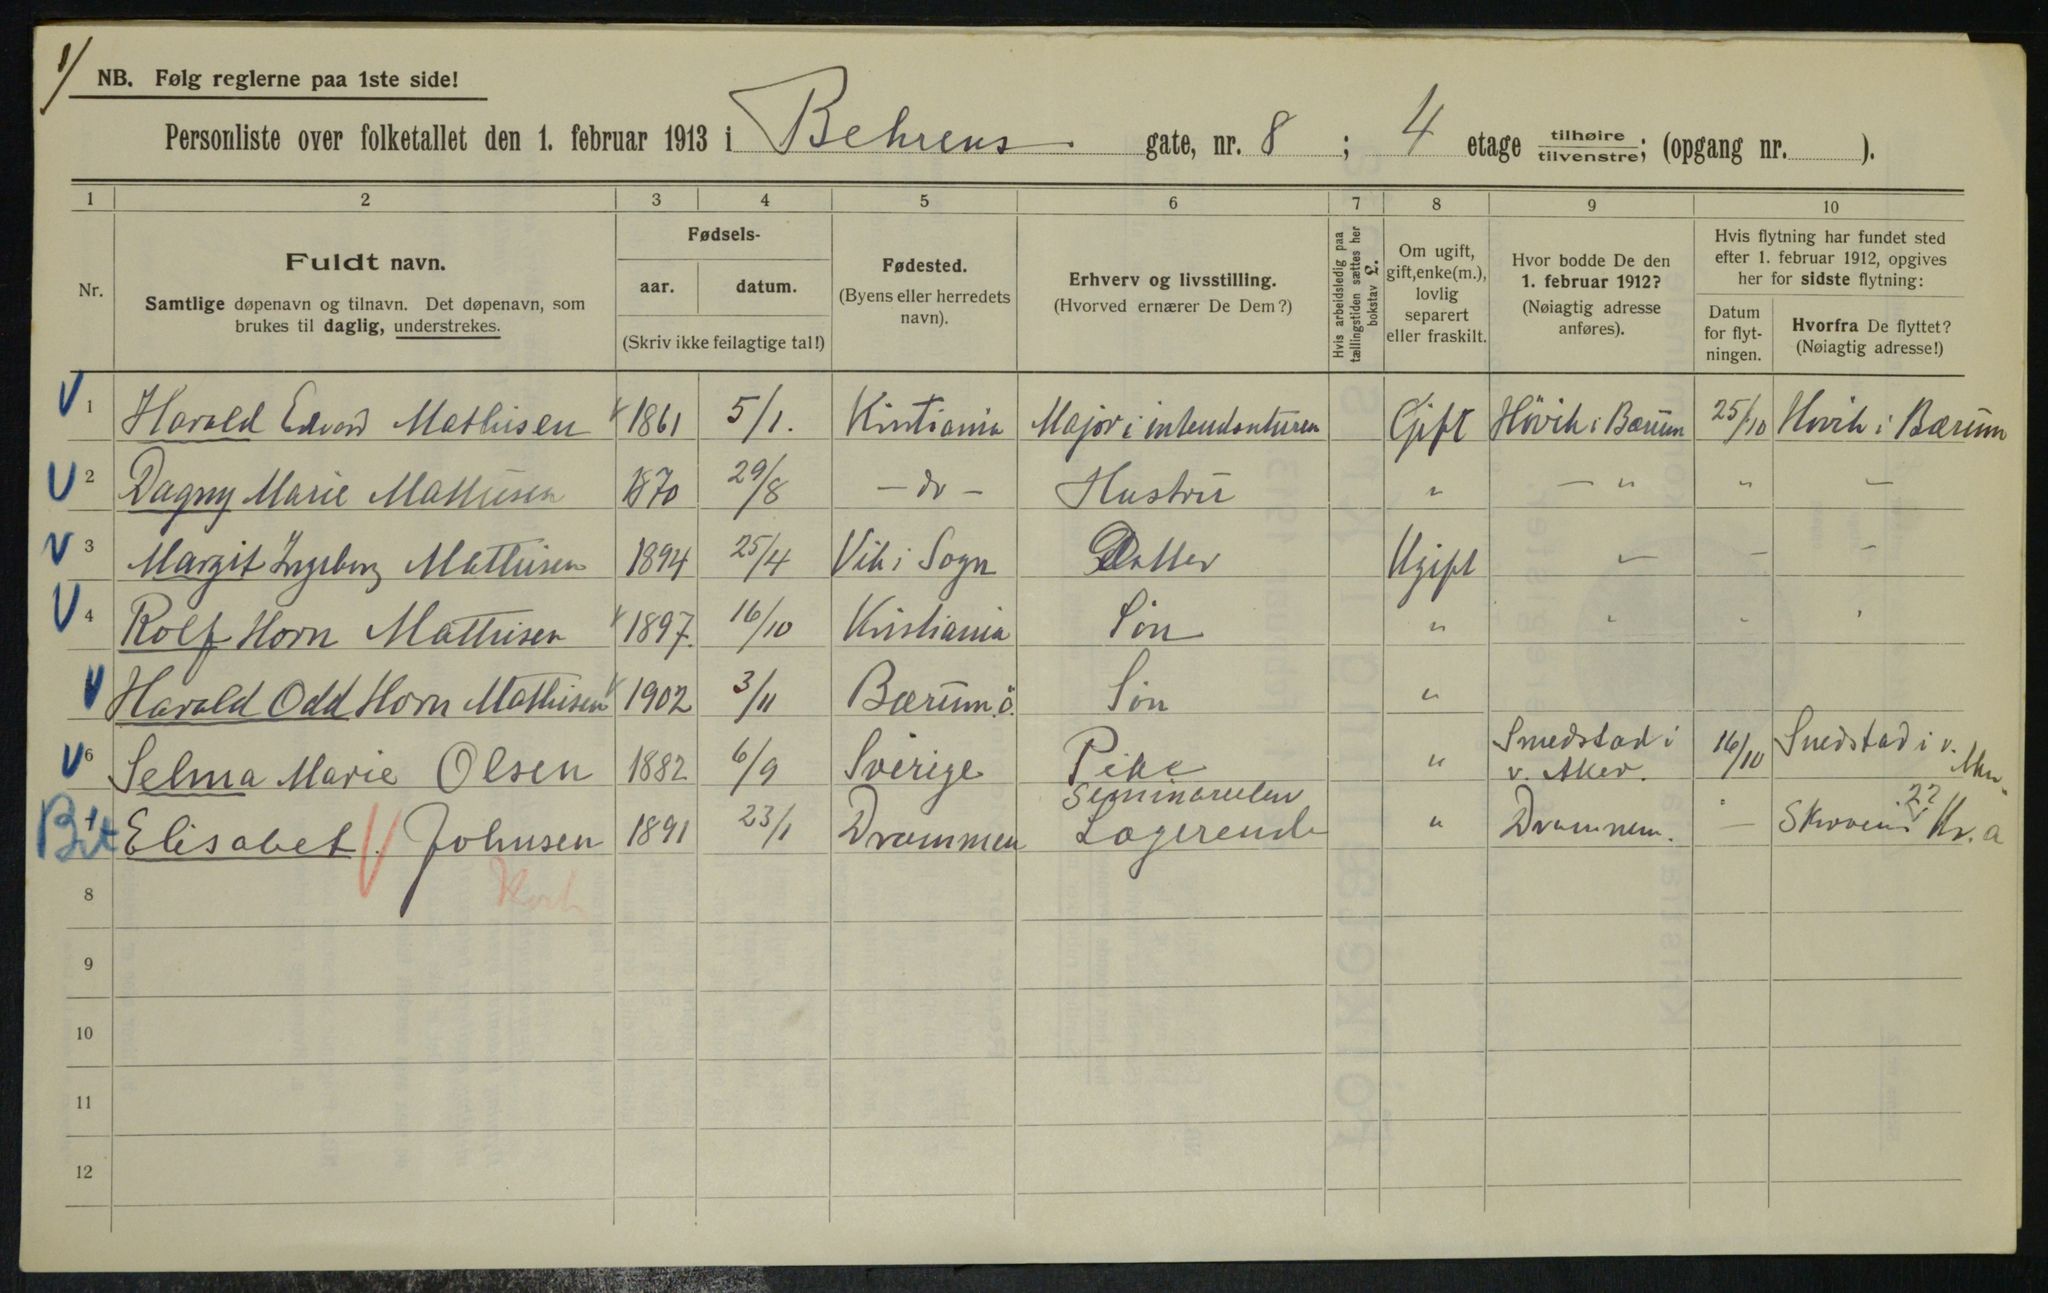 1/
NB. Følg reglerne paa 1ste side!
Personliste over folketallet den 1. februar 1913 i Behrens gate, nr. 8 ; 4 etage tilhøire tilvenstre; (opgang nr. ).
1 2 3 4 5 6 7 8 9 10
Nr.
Fuldt navn.
Samtlige døpenavn og tilnavn. Det døpenavn, som
brukes til daglig, understrekes.
Fødsels-
aar. datum.
(Skriv ikke feilagtige tal!)
Fødested.
(Byens eller herredets
navn).
Erhverv og livsstilling.
(Hvorved ernærer De Dem?)
Hvis arbeidsledig paa
tællingstiden sættes her
bokstav £.
Om ugift,
gift, enke(m.),
lovlig
separert
eller fraskilt.
Hvor bodde De den
1. februar 1912?
(Nøiagtig adresse
anføres).
Hvis flytning har fundet sted
efter 1. februar 1912, opgives
her for sidste flytning:
Datum
for flyt-
ningen.
Hvorfra De flyttet?
(Nøiagtig adresse!)
V 1 Harald Edvard Mathisen 1861 5/1. Kristiania Major i intendanturen Gift Hövik i Bærum 25/10 Hövik i Bærum
V 2 Dagny Marie Mathisen 1870 29/8 — do — Hustru " — " " —
V 3 Margit Ingeborg Mathisen 1894 25/4 Vik i Sogn Datter Ugift — — —
V 4 Rolf Horn Mathisen 1897. 16/10 Kristiania Sön " " " "
V Harald Odd Horn Mathisen 1902 3/11 Bærum. ö. Sön "
V 6 Selma Marie Olsen 1882 6/9 Sverige Pike " Smedstad i v. Aker. 16/10 Smedstad i v. Aker.
Bit Elisabet Johnsen 1891 23/1 Drammen Logerende " Drammen. — 22 Kr.a
8
9
10
11
12